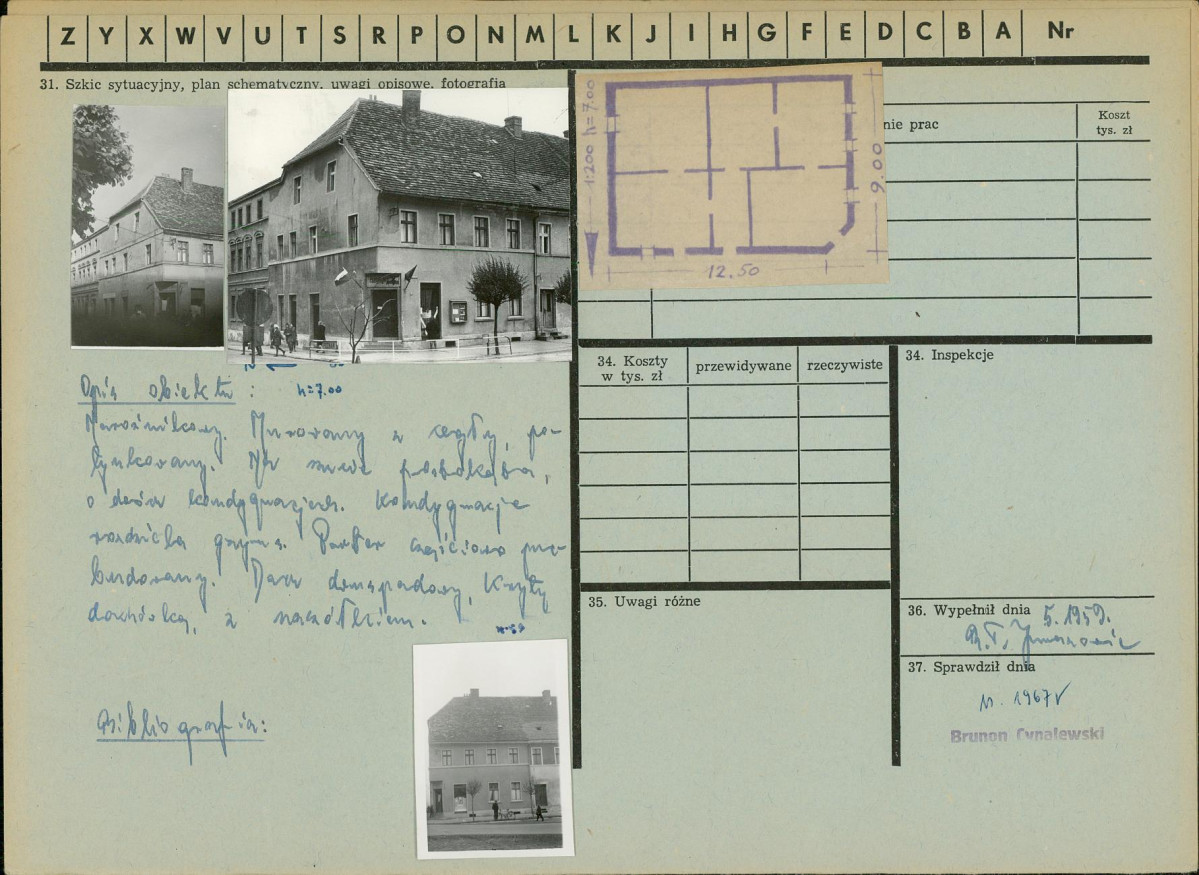 Z Y X W V U T S R P O N M L K J I H G F E D C B A Nr
31. Szkic sytuacyjny, plan schematyczny, uwagi opisowe, fotografia
1:200 h=7.00
9.00
12.50
nie prac
Koszt
tys. zł
h=7.00
Opis obiektu:
Narożnikowy. Murowany z cegły, po-
tynkowany. Na rzucie prostokąta,
o dwóch kondygnacjach. Kondygnacje
rozdziela gzyms. Parter częściowo prze-
budowany. Dach dwuspadowy, kryty
dachówką, z naczółkiem.
Bibliografia:
34. Koszty
w tys. zł
przewidywane
rzeczywiste
34. Inspekcje
35. Uwagi różne
36. Wypełnił dnia 5.1959.
37. Sprawdził dnia
1967
Brunon Cynalewski